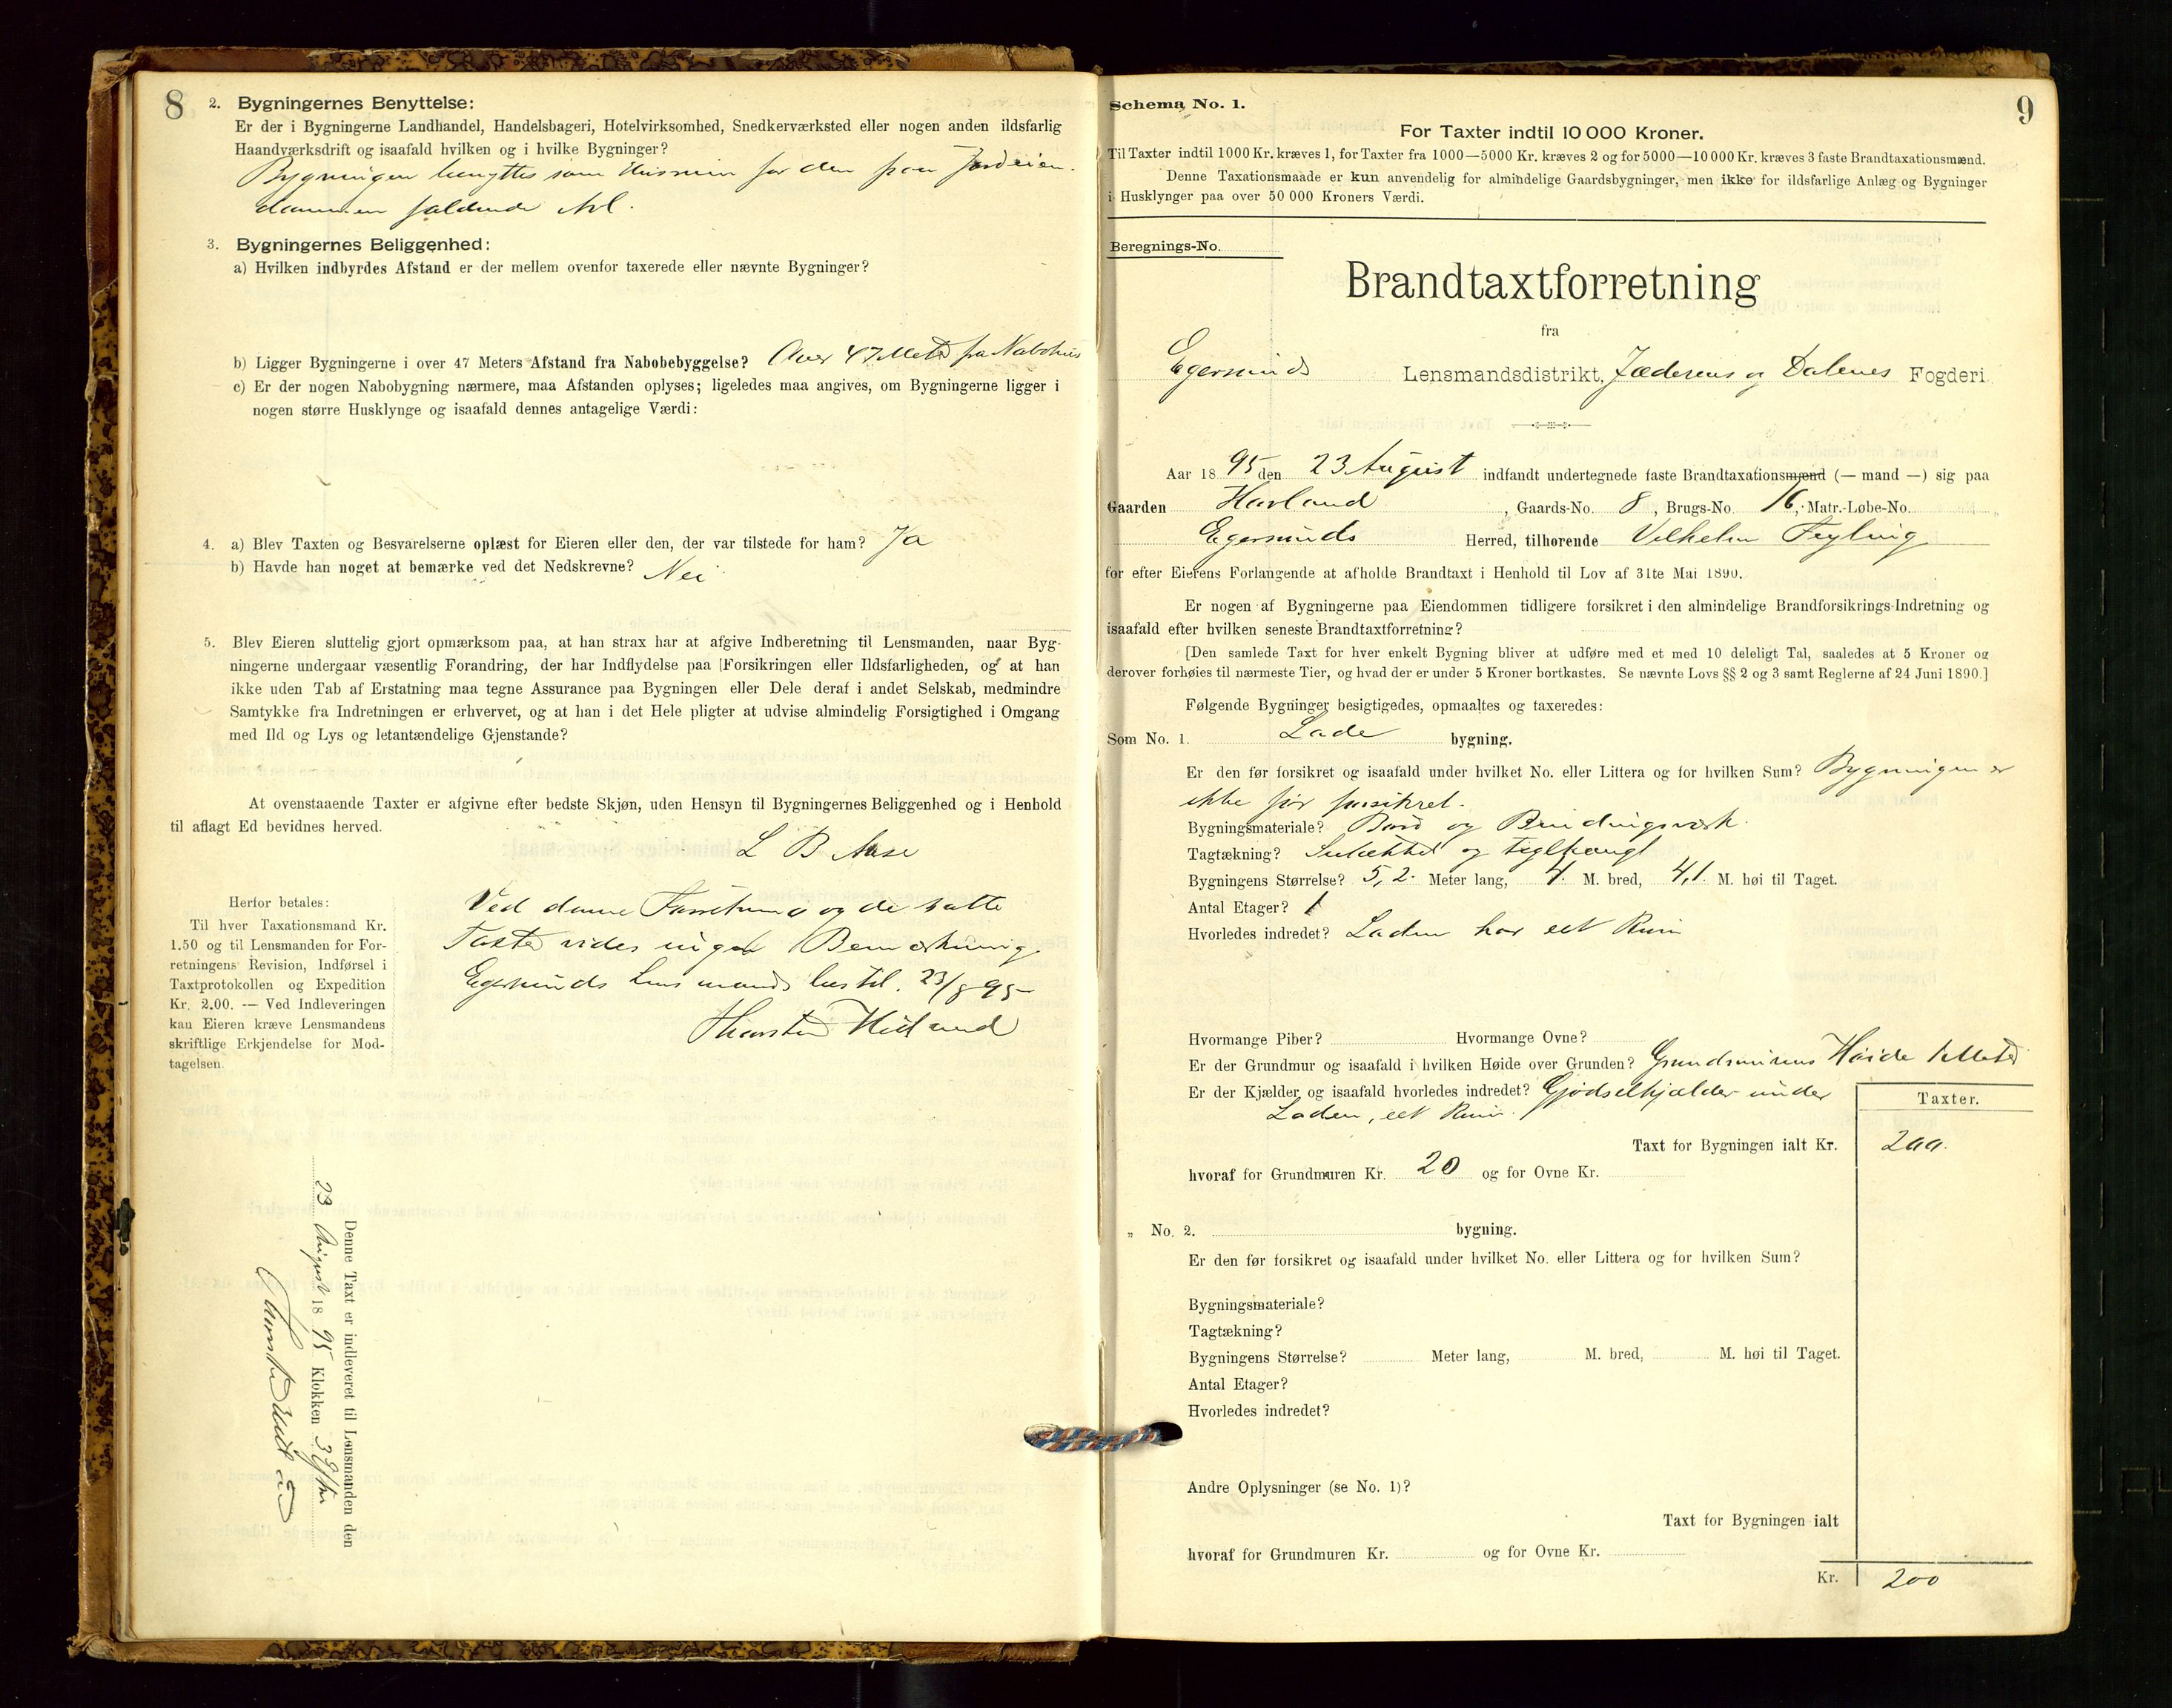 8
2. Bygningernes Benyttelse:
Er der i Bygningerne Landhandel, Handelsbageri, Hotelvirksomhed, Snedkerværksted eller nogen anden ildsfarlig
Haandværksdrift og isaafald hvilken og i hvilke Bygninger?
Bygningen benyttes som Husrum for den paa Jordeien-
dommen faldende Avl.
3. Bygningernes Beliggenhed:
a) Hvilken indbyrdes Afstand er der mellem ovenfor taxerede eller nævnte Bygninger?
b) Ligger Bygningerne i over 47 Meters Afstand fra Nabobebyggelse? Over 47 Meter fra Nabohus
c) Er der nogen Nabobygning nærmere, maa Afstanden oplyses; ligeledes maa angives, om Bygningerne ligger i
nogen større Husklynge og isaafald dennes antagelige Værdi:
4. a) Blev Taxten og Besvarelserne oplæst for Eieren eller den, der var tilstede for ham? Ja
b) Havde han noget at bemærke ved det Nedskrevne? Nei
5. Blev Eieren sluttelig gjort opmærksom paa, at han strax har at afgive Indberetning til Lensmanden, naar Byg-
ningerne undergaar væsentlig Forandring, der har Indflydelse paa [Forsikringen eller Ildsfarligheden, og at han
ikke uden Tab af Erstatning maa tegne Assurance paa Bygningen eller Dele deraf i andet Selskab, medmindre
Samtykke fra Indretningen er erhvervet, og at han i det Hele pligter at udvise almindelig Forsigtighed i Omgang
med Ild og Lys og letantændelige Gjenstande?
At ovenstaaende Taxter er afgivne efter bedste Skjøn, uden Hensyn til Bygningernes Beliggenhed og i Henhold
til aflagt Ed bevidnes herved.
L B Aase
Herfor betales:
Til hver Taxationsmand Kr.
1.50 og til Lensmanden for For-
retningens Revision, Indførsel i
Taxtprotokollen og Expedition
Kr. 2.00. — Ved Indleveringen
kan Eieren kræve Lensmandens
skriftlige Erkjendelse for Mod-
tagelsen.
Ved denne Forretning og de satte
Taxter vides ingen Bemærkning
Egersunds Lensmandsbestil. 23/8 95
Denne Taxt er indleveret til Lensmanden den
23 August 1895 Klokken 3 Efter
9
Schema No. 1.
For Taxter indtil 10 000 Kroner.
Til Taxter indtil 1000 Kr. kræves 1, for Taxter fra 1000—5000 Kr. kræves 2 og for 5000—10 000 Kr. kræves 3 faste Brandtaxationsmænd.
Denne Taxationsmaade er kun anvendelig for almindelige Gaardsbygninger, men ikke for ildsfarlige Anlæg og Bygninger
i Husklynger paa over 50 000 Kroners Værdi.
Beregnings-No.
Brandtaxtforretning
fra
Egersunds Lensmandsdistrikt, Jæderens og Dalenes Fogderi
Aar 1895 den 23 August indfandt undertegnede faste Brandtaxationsmænd (— mand —) sig paa
Gaarden Havland, Gaards-No. 8, Brugs-No. 16, Matr.-Løbe-No.
Egersunds Herred, tilhørende Velhelm Feyling
for efter Eierens Forlangende at afholde Brandtaxt i Henhold til Lov af 31te Mai 1890.
Er nogen af Bygningerne paa Eiendommen tidligere forsikret i den almindelige Brandforsikrings-Indretning og
isaafald efter hvilken seneste Brandtaxtforretning?
[Den samlede Taxt for hver enkelt Bygning bliver at udføre med et med 10 deleligt Tal, saaledes at 5 Kroner og
derover forhøies til nærmeste Tier, og hvad der er under 5 Kroner bortkastes. Se nævnte Lovs §§ 2 og 3 samt Reglerne af 24 Juni 1890.]
Følgende Bygninger besigtigedes, opmaaltes og taxeredes:
Som No. 1. Lade bygning.
Er den før forsikret og isaafald under hvilket No. eller Littera og for hvilken Sum? Bygningen er
ikke før forsikret.
Bygningsmateriale? Bord og Bindingsværk
Tagtækning? Sutækket og teglhængt
Bygningens Størrelse? 5,2. Meter lang, 4. M. bred, 4,1. M. høi til Taget.
Antal Etager? 1
Hvorledes indredet? Laden har eet Rum
Hvormange Piber? Hvormange Ovne?
Er der Grundmur og isaafald i hvilken Høide over Grunden? Grundmurens Høide 1 Meter
Er der Kjælder og isaafald hvorledes indredet? Gjødselkjælder under
Laden, eet Rum.
Taxter.
Taxt for Bygningen ialt Kr. 200.
hvoraf for Grundmuren Kr. 20 og for Ovne Kr.
„ No. 2. bygning.
Er den før forsikret og isaafald under hvilket No. eller Littera og for hvilken Sum?
Bygningsmateriale?
Tagtækning?
Bygningens Størrelse? Meter lang, M. bred, M. høi til Taget.
Antal Etager?
Hvorledes indredet?
Andre Oplysninger (se No. 1)?
Taxt for Bygningen ialt
hvoraf for Grundmuren Kr. og for Ovne Kr.
Kr. 200